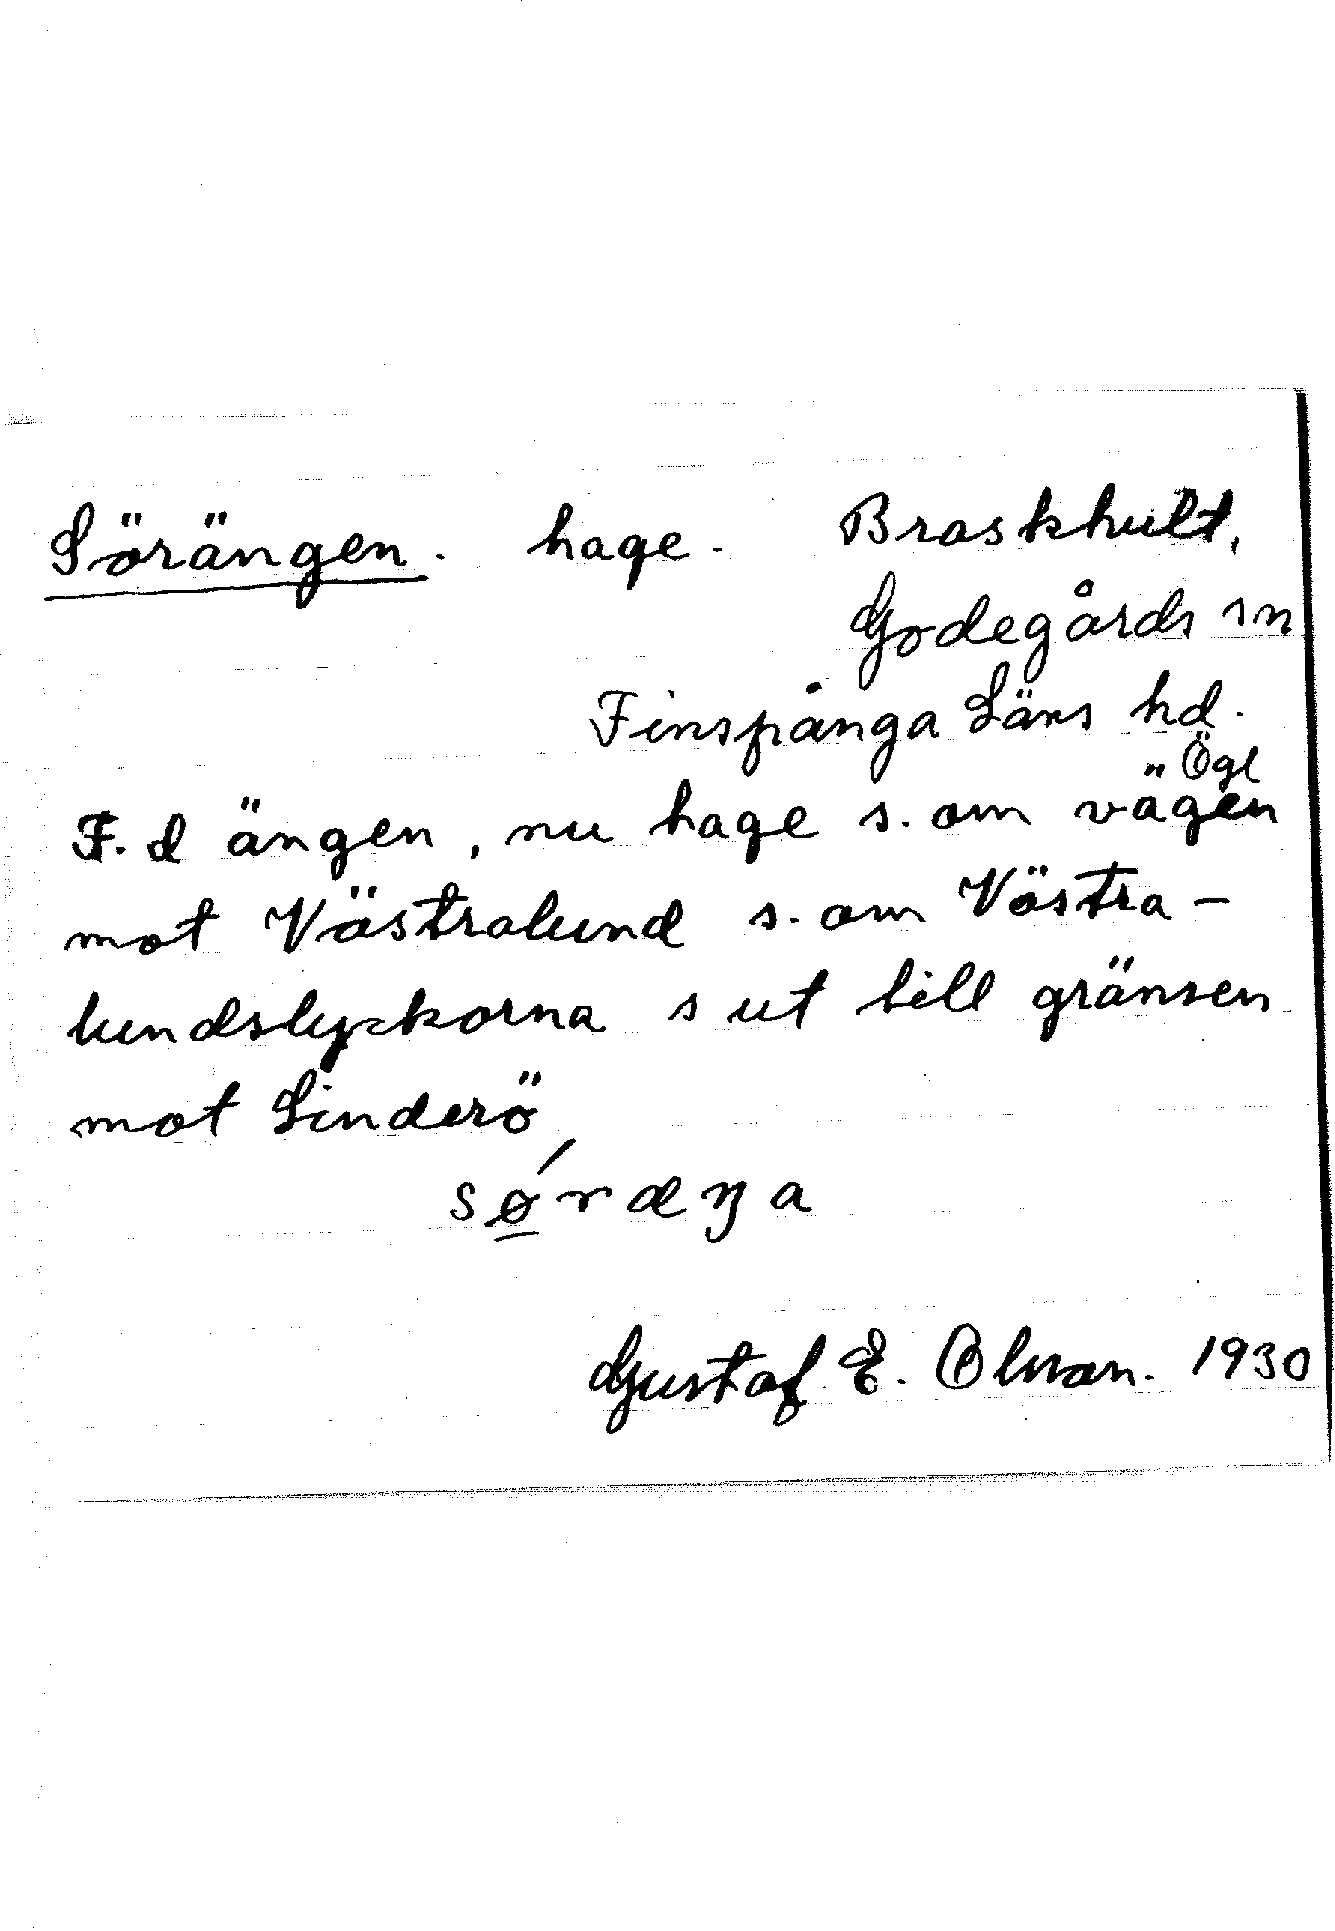 Sörängen. hage. Braskhult,
Godegårds sn
Finspånga Läns hd.
Ögl
F.d ängen, nu hage s. om vägen
mot Västralund s. om Västra-
lundslyckorna s ut till gränsen
mot Linderö
sǿræŋa
Gustaf E. Olsson. 1930